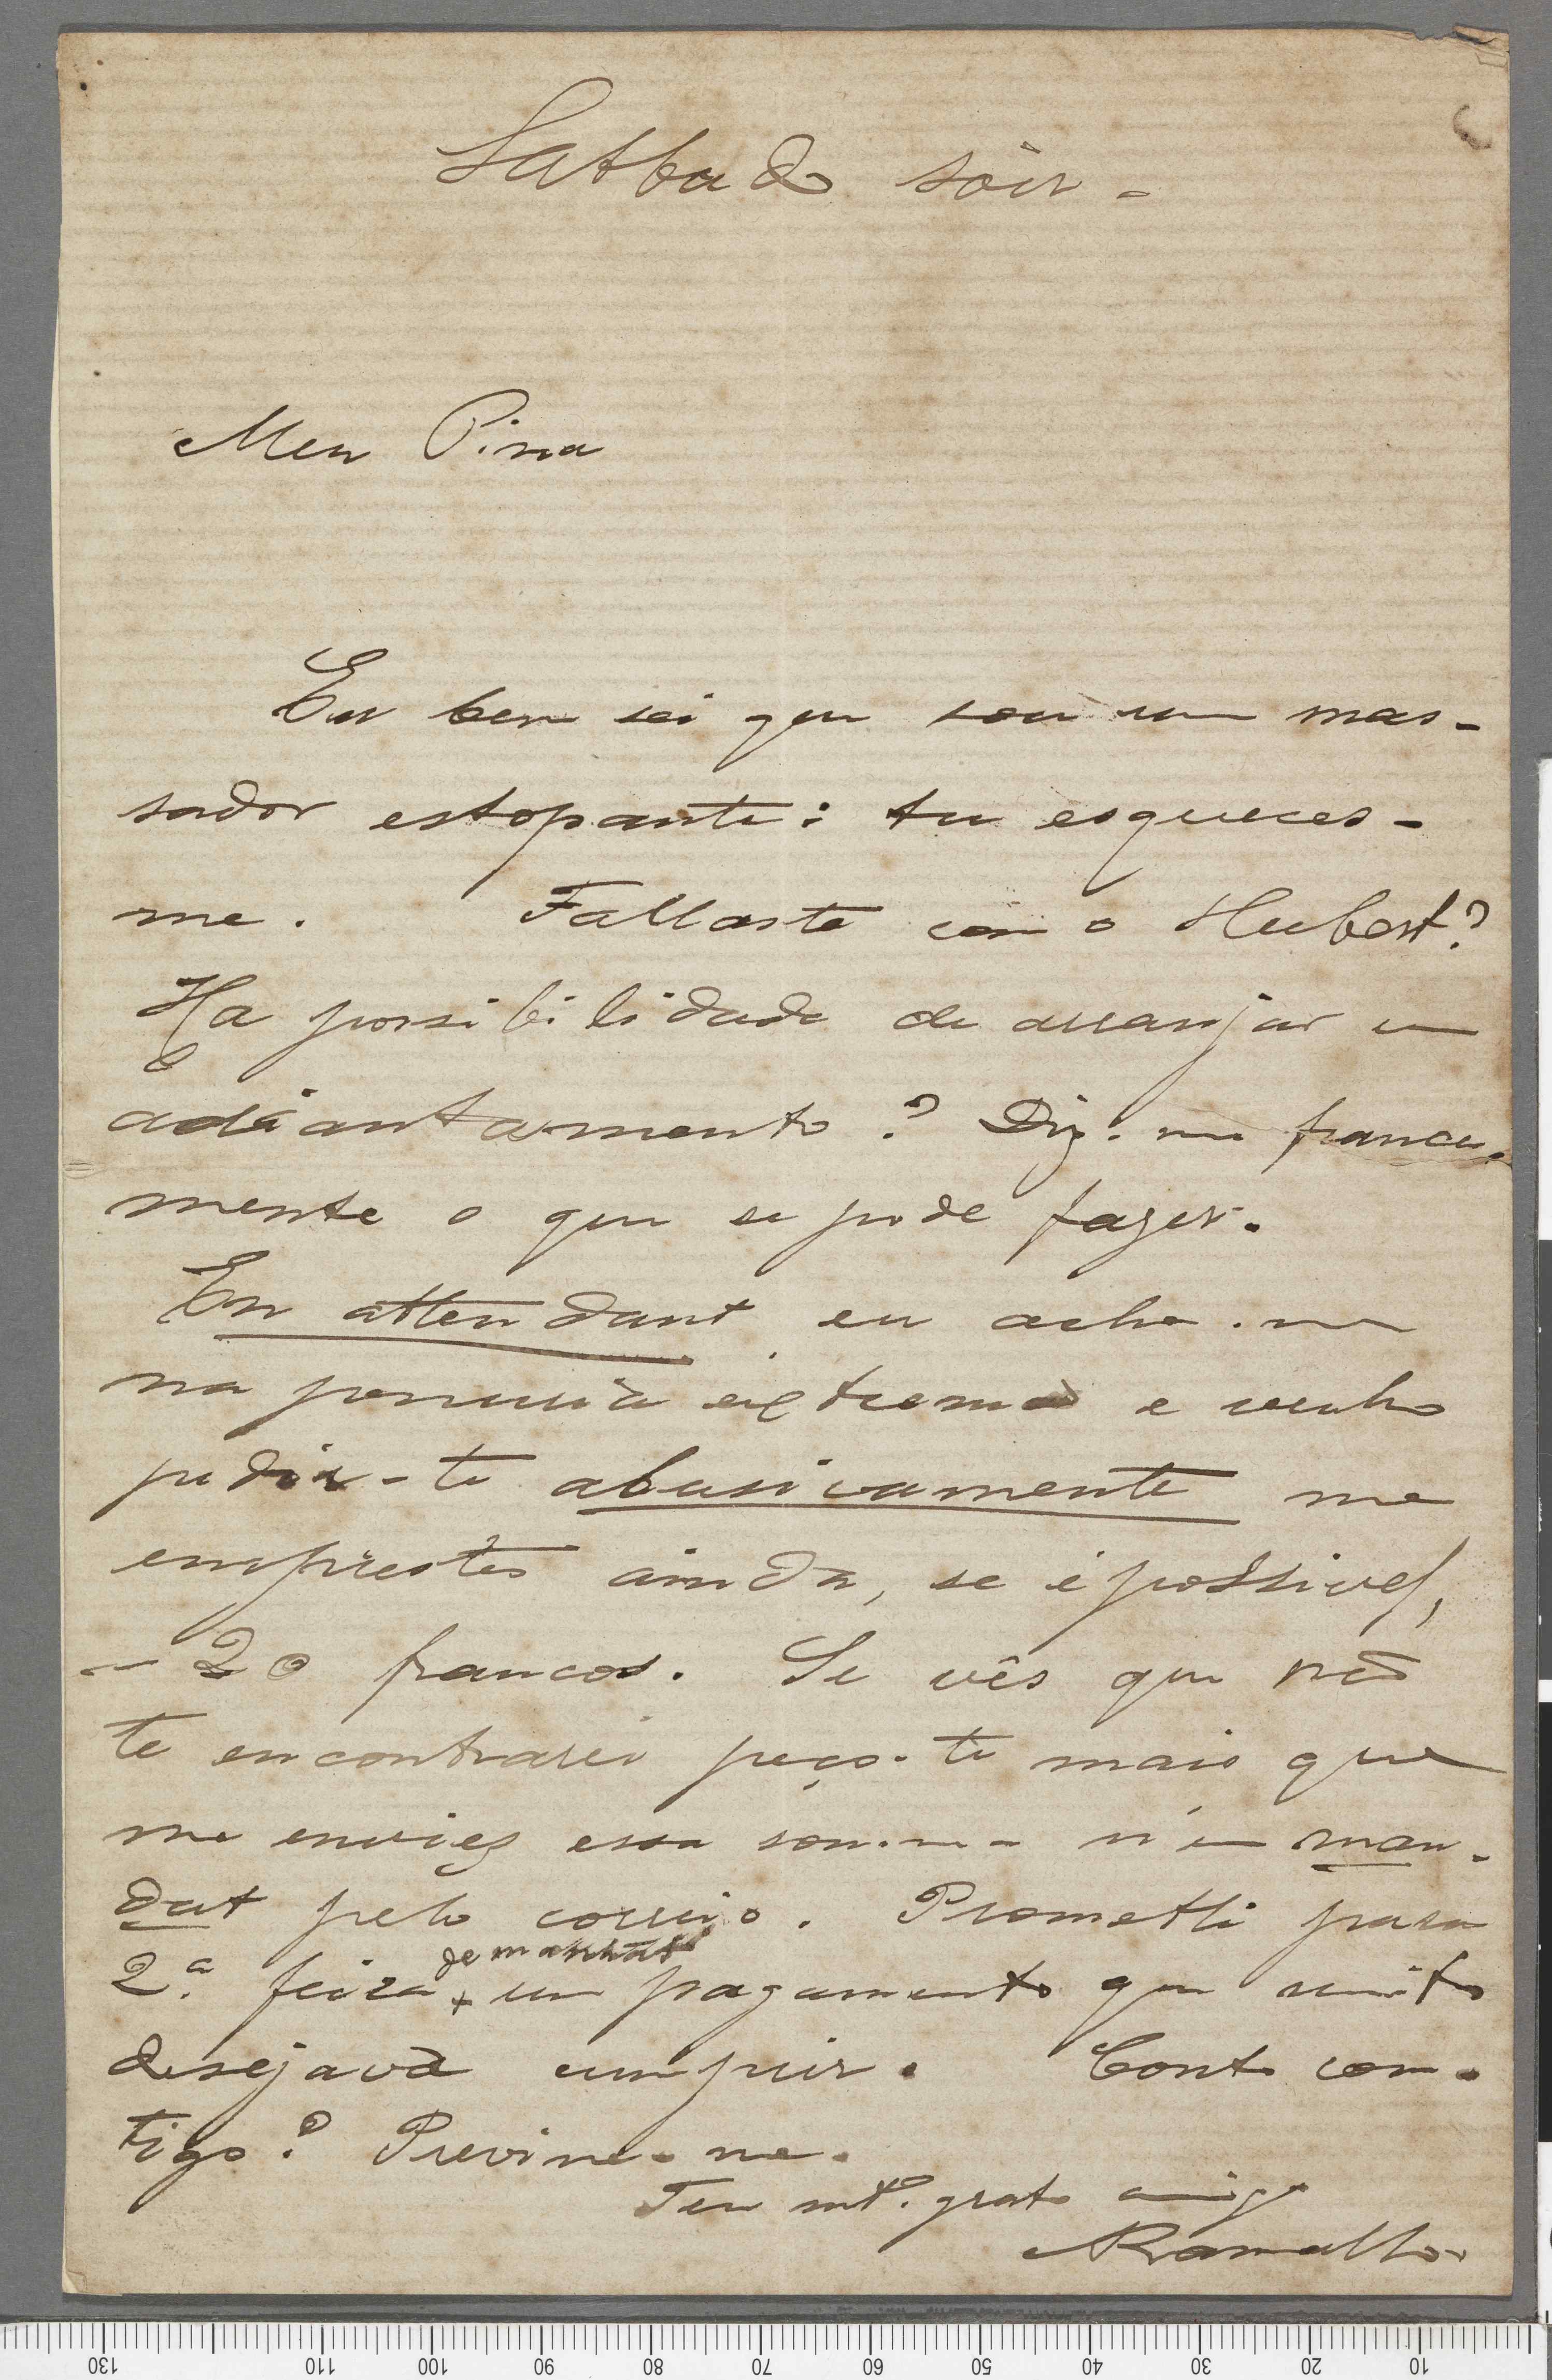 Sabbado soir -
Meu Pina
Eu bem sei que sou um mas-
sador estopante: tu esqueces-
me. Fallaste com o Hubert?
Ha possibilidade de arranjar um
adiantamento? Diz-me franca-
mente o que se pode fazer.
En attendant eu acho-me
na penuria extrema e venho
pedir-te abusivamente me
emprestes ainda, se é possivel,
- 20 francos. Se vês que não
te encontrarei peço-te mais que
me enviez essa somma n'um man-
dat pelo correio. Prometti para
de manhãs
2.ª feira + um pagamento que muito
desejava cumprir. Conto com-
tigo? Previne-me.
Teu mt.º grato amigo
Ramalho
130 110 100 90 80 70 60 50 40 30 20 10